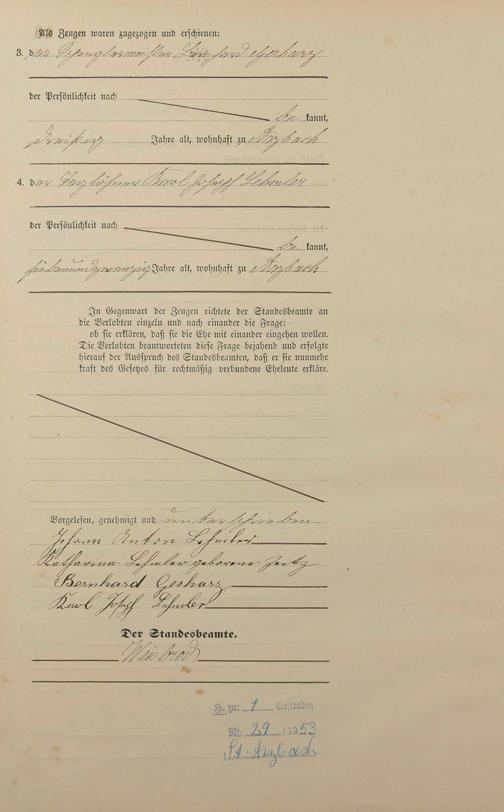 Als Zeugen waren zugezogen und erschienen:
3. der Spenglermeister Bernhard Gerharz
der Persönlichkeit nach
be kannt,
dreißig Jahre alt, wohnhaft zu Arzbach
4. der Taglöhner Karl Joseph Lehmler
der Persönlichkeit nach
be kannt,
siebenundzwanzig Jahre alt, wohnhaft zu Arzbach
In Gegenwart der Zeugen richtete der Standesbeamte an
die Verlobten einzeln und nach einander die Frage:
ob sie erklären, daß sie die Ehe mit einander eingehen wollen.
Die Verlobten beantworteten diese Frage bejahend und erfolgte
hierauf der Ausspruch des Standesbeamten, daß er sie nunmehr
kraft des Gesetzes für rechtmäßig verbundene Eheleute erkläre.
Vorgelesen, genehmigt und unterschrieben
Johann Anton Lehmler
Katharina Lehmler geborene Zeitz
Bernhard Gerharz
Karl Joseph Lehmler
Der Standesbeamte.
Weisbrod
H. zu: 1 Gestorben
Nr. 29 / 1953
St. Arzbach